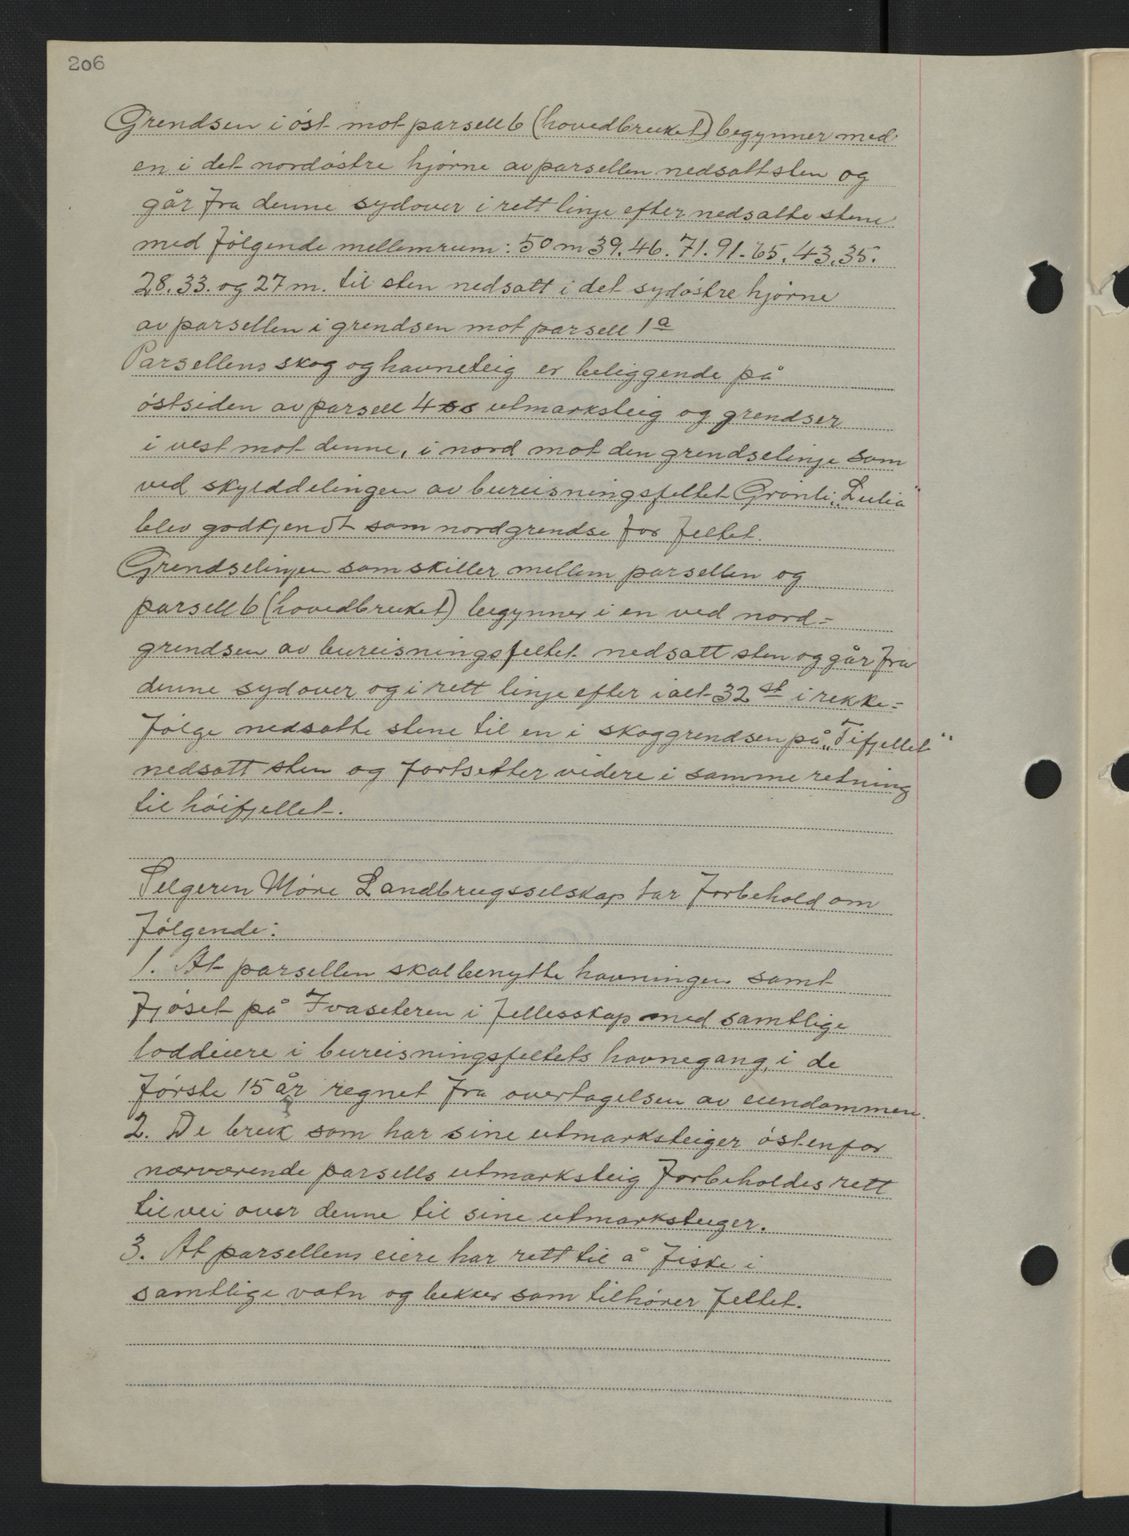 206
Grendsen i öst mot parsell 6 (hovedbruket) begynner med
en i det nordöstre hjörne av parsellen nedsatt sten og
går fra denne sydover i rett linje efter nedsatte stene
med fölgende mellemrum: 50 m 39. 46. 71. 91. 65. 43. 35.
28. 33. og 27 m. til sten nedsatt i det sydöstre hjörne
av parsellen i grendsen mot parsell 1a
Parsellens skog og havneteig er beliggende på
östsiden av parsell 4 utmarksteig og grendser
i vest mot denne, i nord mot den grendselinje som
ved skylddelingen av bureisningsfeltet Grönli „Lulia“
blev godkjendt som nordgrendse for feltet.
Grendselinjen som skiller mellem parsellen og
parsell 6 (hovedbruket) begynner i en ved nord-
grendsen av bureisningsfeltet nedsatt sten og går fra
denne sydover og i rett linje efter i alt 32 st i rekke-
fölge nedsatte stene til en i skoggrendsen på „Tifjellet“
nedsatt sten og fortsetter videre i samme retning
til höifjellet.
Selgeren Möre Landbrugsselskap tar forbehold om
fölgende:
1. At parsellen skal benytte havningen samt
fjöset på Ivaseteren i fellesskap med samtlige
loddeiere i bureisningsfeltets havnegang, i de
förste 15 år regnet fra overtagelsen av eiendommen.
2. De bruk som har sine utmarksteiger östenfor
nærværende parsells utmarksteig forbeholdes rett
til vei over denne til sine utmarksteiger.
3. At parsellens eiere har rett til å fiske i
samtlige vatn og bekker som tilhörer feltet.